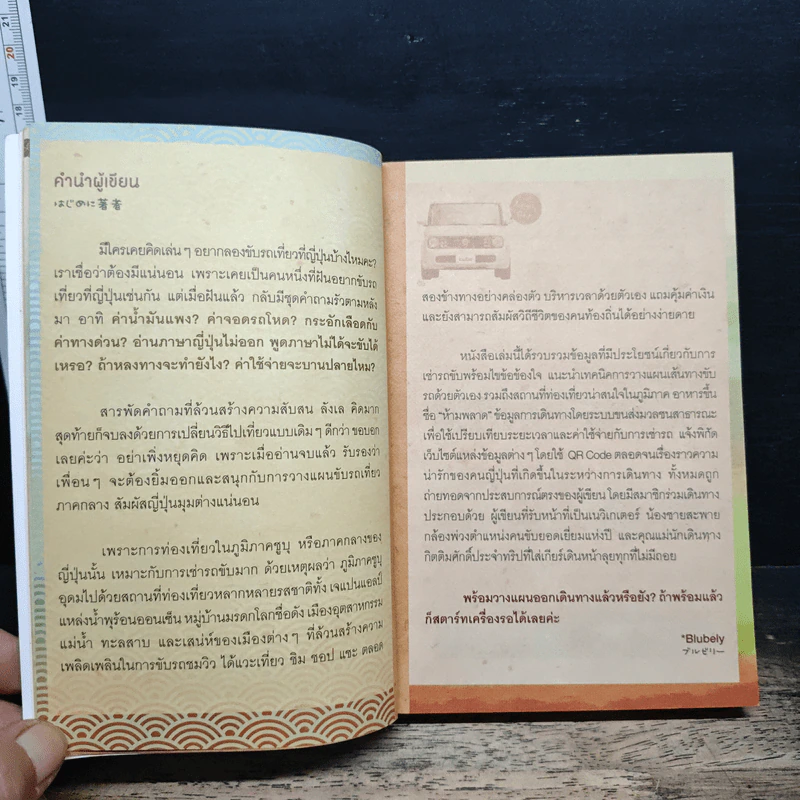 คำนำผู้เขียน
はじめに著者
มีใครเคยคิดเล่น ๆ อยากลองขับรถเที่ยวที่ญี่ปุ่นบ้างไหมคะ?
เราเชื่อว่าต้องมีแน่นอน เพราะเคยเป็นคนหนึ่งที่ฝันอยากขับรถ
เที่ยวที่ญี่ปุ่นเช่นกัน แต่เมื่อฝันแล้ว กลับมีชุดคำถามรัวตามหลัง
มา อาทิ ค่าน้ำมันแพง? ค่าจอดรถโหด? กระอักเลือดกับ
ค่าทางด่วน? อ่านภาษาญี่ปุ่นไม่ออก พูดภาษาไม่ได้จะขับได้
เหรอ? ถ้าหลงทางจะทำยังไง? ค่าใช้จ่ายจะบานปลายไหม?
สารพัดคำถามที่ล้วนสร้างความสับสน ลังเล คิดมาก
สุดท้ายก็จบลงด้วยการเปลี่ยนวิธีไปเที่ยวแบบเดิม ๆ ดีกว่า ขอบอก
เลยค่ะว่า อย่าเพิ่งหยุดคิด เพราะเมื่ออ่านจบแล้ว รับรองว่า
เพื่อน ๆ จะต้องยิ้มออกและสนุกกับการวางแผนขับรถเที่ยว
ภาคกลาง สัมผัสญี่ปุ่นมุมต่างแน่นอน
เพราะการท่องเที่ยวในภูมิภาคชูบุ หรือภาคกลางของ
ญี่ปุ่นนั้น เหมาะกับการเช่ารถขับมาก ด้วยเหตุผลว่า ภูมิภาคชูบุ
อุดมไปด้วยสถานที่ท่องเที่ยวหลากหลายรสชาติทั้ง เจแปนแอลป์
แหล่งน้ำพุร้อนออนเซ็น หมู่บ้านมรดกโลกชื่อดัง เมืองอุตสาหกรรม
แม่น้ำ ทะลสาบ และเสน่ห์ของเมืองต่าง ๆ ที่ล้วนสร้างความ
เพลิดเพลินในการขับรถชมวิว ได้แวะเที่ยว ชิม ชอป แชะ ตลอด
สองข้างทางอย่างคล่องตัว บริหารเวลาด้วยตัวเอง แถมคุ้มค่าเงิน
และยังสามารถสัมผัสวิถีชีวิตของคนท้องถิ่นได้อย่างง่ายดาย
หนังสือเล่มนี้ได้รวบรวมข้อมูลที่มีประโยชน์เกี่ยวกับการ
เช่ารถขับพร้อมไขข้อข้องใจ แนะนำเทคนิคการวางแผนเส้นทางขับ
รถด้วยตัวเอง รวมถึงสถานที่ท่องเที่ยวน่าสนใจในภูมิภาค อาหารขึ้น
ชื่อ "ห้ามพลาด" ข้อมูลการเดินทางโดยระบบขนส่งมวลชนสาธารณะ
เพื่อใช้เปรียบเทียบระยะเวลาและค่าใช้จ่ายกับการเช่ารถ แจ้งพิกัด
เว็บไซต์แหล่งข้อมูลต่าง ๆ โดยใช้ QR Code ตลอดจนเรื่องราวความ
น่ารักของคนญี่ปุ่นที่เกิดขึ้นในระหว่างการเดินทาง ทั้งหมดถูก
ถ่ายทอดจากประสบการณ์ตรงของผู้เขียน โดยมีสมาชิกร่วมเดินทาง
ประกอบด้วย ผู้เขียนที่รับหน้าที่เป็นเนวิเกเตอร์ น้องชายสะพาย
กล้องพ่วงตำแหน่งคนขับยอดเยี่ยมแห่งปี และคุณแม่นักเดินทาง
กิตติมศักดิ์ประจำทริปที่ใส่เกียร์เดินหน้าลุยทุกที่ไม่มีถอย
พร้อมวางแผนออกเดินทางแล้วหรือยัง? ถ้าพร้อมแล้ว
ก็สตาร์ทเครื่องรอได้เลยค่ะ
*Blubely
ブルビリー